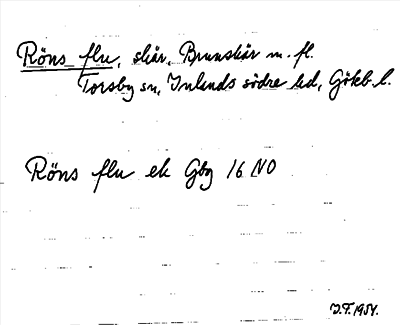 Röns flu, skär, Brunskär m. fl.
Torsby sn, Inlands södre hd, Göteb. l.
Röns flu ek Gbg 16 NO
J.F. 1954.